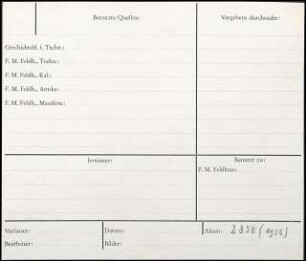 Benutzte Quellen:
Vergebens durchsucht:
Geschichtsbl. f. Techn.:
F. M. Feldh., Techn.:
F. M. Feldh., Kal.:
F. M. Feldh., Antike:
F. M. Feldh., Maschine:
Benutzt zu:
F. M. Feldhaus:
Verfasser:
Datum:
Akten:
Bearbeiter:
Bilder: